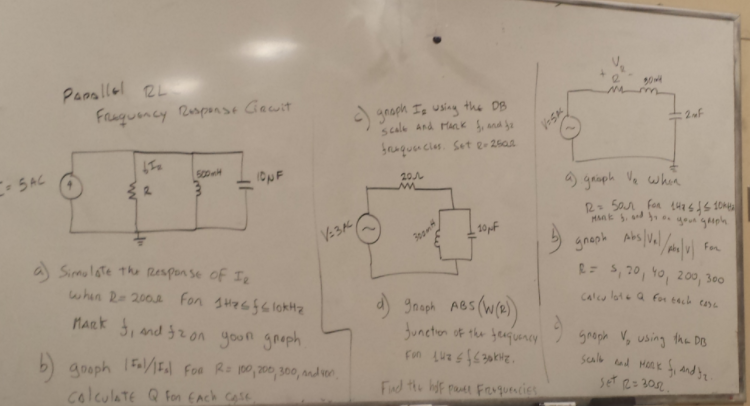 Parallel RL
Frequency Response Circuit
= 5 AC
↓I2
R
500mH
10µF
a) Simulate the Response of I2
when R=200Ω For 1Hz≤f≤10kHz
Mark f1 and f2 on your graph
b) graph For R=100,200,300,
Calculate Q For Each Case.
c) graph I2 using the DB
scale and Mark f1 and f2
frequencies. Set R=250Ω
20Ω
V=3AC
500mH
10µF
d) graph ABS(W(R))
function of the frequency
For 1Hz≤f≤30kHz.
Find the half power Frequencies
VR
+ R -
V=5AC
a) graph VR when
R=50Ω For 1Hz≤f≤10kHz
Mark f1 and f2 on your graph
b) graph Abs|VR|/Abs|V| For
R= 5, 20, 40, 200, 300
Calculate Q For each case
c) graph VR using the DB
Scale and Mark f1 and f2.
Set R=30Ω.